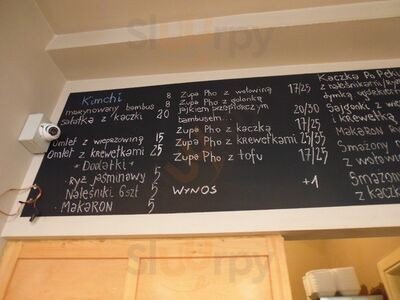 Kimchi 8
marynowany bambus 8
sałatka z kaczki 20
Omlet z wieprzowiną 15
Omlet z krewetkami 25
+ Dodatki +
Ryż jaśminowy 5
Naleśniki 6szt 5
MAKARON 5
Zupa Pho z wołowiną 17/25
Zupa Pho z golonką
jajkiem przepiórczym 20/30
bambusem...
Zupa Pho z kaczką 17/25
Zupa Pho z krewetkami 25/35
Zupa Pho z tofu 17/25
WYNOS +1
Kaczka Po Pek
z naleśnikami, Ryż
dymką ogórkiem
Sajgonki z wie
i krewetką
Makaron Ry
Smażony
z wołowin
Smażony
z kaczk
Sluurpy
Sluurpy